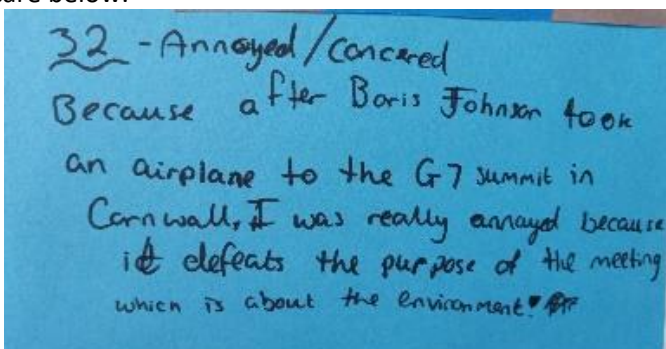 are below.
32 - Annoyed/concered
Because after Boris Johnson took
an airplane to the G7 summit in
Cornwall, I was really annayed because
it defeats the purpose of the meeting
which is about the environment!